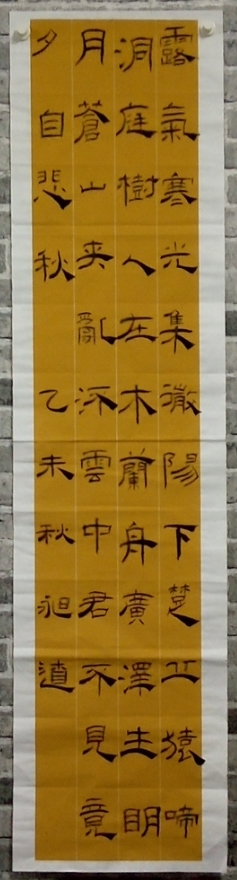 露氣寒光集微陽下楚丘猿啼
洞庭樹人在木蘭舟廣澤生明
月蒼山夾亂流雲中君不見竟
夕自悲秋 乙未秋